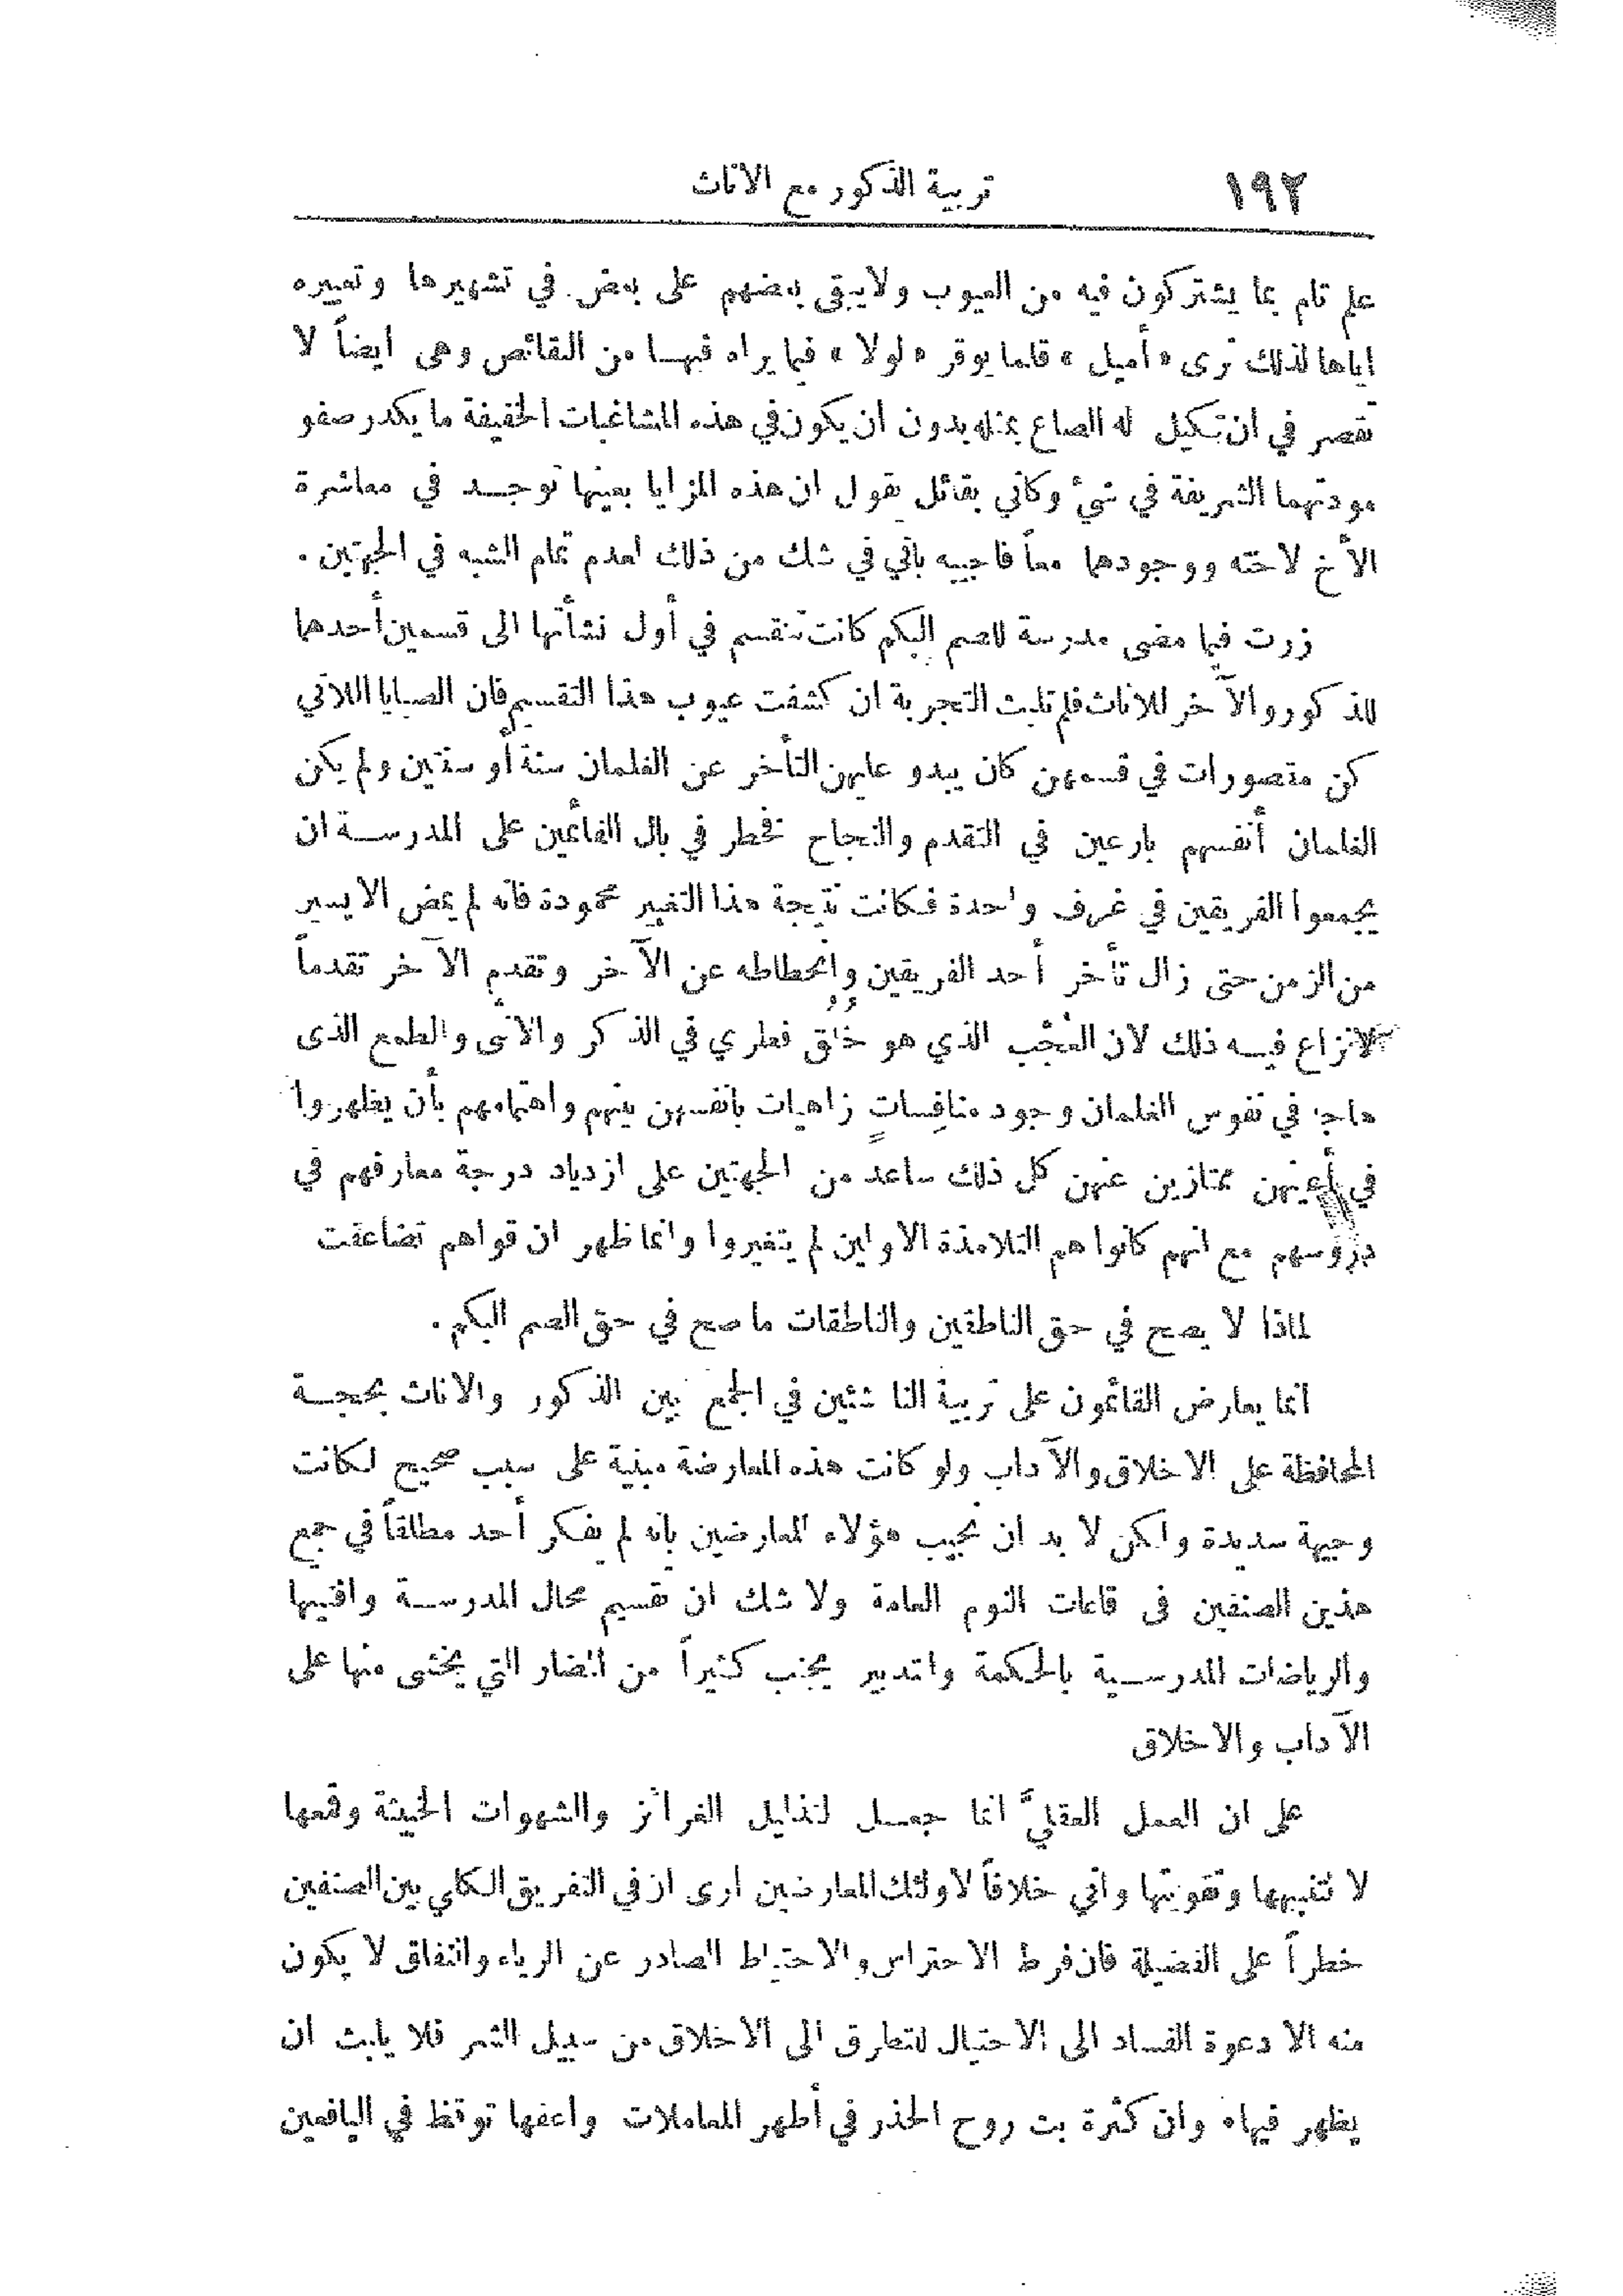 ١٩٢ تربية الذكور مع الاناث
علم تام بما يشتركون فيه من العيوب ولايبقى بعضهم على بعض في تشهيرها وتعييره
اياها لذلك ترى «أميل» قلما يوقر «لولا» فيما يراه فيهـا من النقائص وهى ايضاً لا
تقصر في ان تكيل له الصاع بمثله بدون ان يكون في هذه المشاغبات الخفيفة ما يكدر صفو
مودتهما الشريفة في شيء وكاني بقائل يقول ان هذه المزايا بعينها توجـد في معاشرة
الأخ لاخته ووجودهما معاً فاجيبه باني في شك من ذلك لعدم تمام الشبه في الجهتين .
زرت فيما مضى مدرسة للصم البكم كانت تنقسم في أول نشأتها الى قسمين أحدهما
للذكور والآخر للاناث فلم تلبث التجربة ان كشفت عيوب هذا التقسيم فان الصبايا اللاتي
كن مقصورات في قسمهن كان يبدو عليهن التأخر عن الغلمان سنة أو سنتين ولم يكن
الغلمان أنفسهم بارعين في التقدم والنجاح فخطر في بال القائمين على المدرسـة ان
يجمعوا الفريقين في غرف واحدة فكانت نتيجة هذا التغيير محمودة فانه لم يمض الا يسير
من الزمن حتى زال تأخر أحد الفريقين وانحطاطه عن الآخر وتقدم الآخر تقدماً
لانزاع فيـه ذلك لان العُجْب الذي هو خُلُق فطري في الذكر والانثى والطمع الذى
هاجه في نفوس الغلمان وجود منافِساتٍ زاهيات بانفسهن بينهم واهتمامهم بأن يظهروا
في أعينهن ممتازين عنهن كل ذلك ساعد من الجهتين على ازدياد درجة معارفهم في
دروسهم مع انهم كانوا هم التلامذة الاولين لم يتغيروا وانما ظهر ان قواهم تضاعفت
لماذا لا يصح في حق الناطقين والناطقات ما صح في حق الصم البكم .
انما يعارض القائمون على تربية الناشئين في الجمع بين الذكور والاناث بحجـة
المحافظة على الاخلاق والآداب ولو كانت هذه المعارضة مبنية على سبب صحيح لكانت
وجيهة سديدة ولكن لا بد ان نجيب هؤلاء المعارضين بانه لم يفكر أحد مطلقاً في جمع
هذين الصنفين فى قاعات النوم العامة ولا شك ان تقسيم محال المدرسـة وافنيتها
والرياضات المدرسـية بالحكمة والتدبير يجنب كثيراً من المضار التي يخشى منها على
الآداب والاخلاق
على ان العمل العقليَّ انما جعـل لتذليل الغرائز والشهوات الخبيثة وقمعها
لا لتنبيهها وتقويتها واني خلافاً لاولئك المعارضين ارى ان في التفريق الكلي بين الصنفين
خطراً على الفضيلة فان فرط الاحتراس والاحتياط الصادر عن الرياء والنفاق لا يكون
منه الا دعوة الفساد الى الاحتيال للتطرق الى الاخلاق من سبيل الشر فلا يلبث ان
يظهر فيها. وان كثرة بث روح الحذر في أطهر المعاملات واعفها توقظ في اليافعين